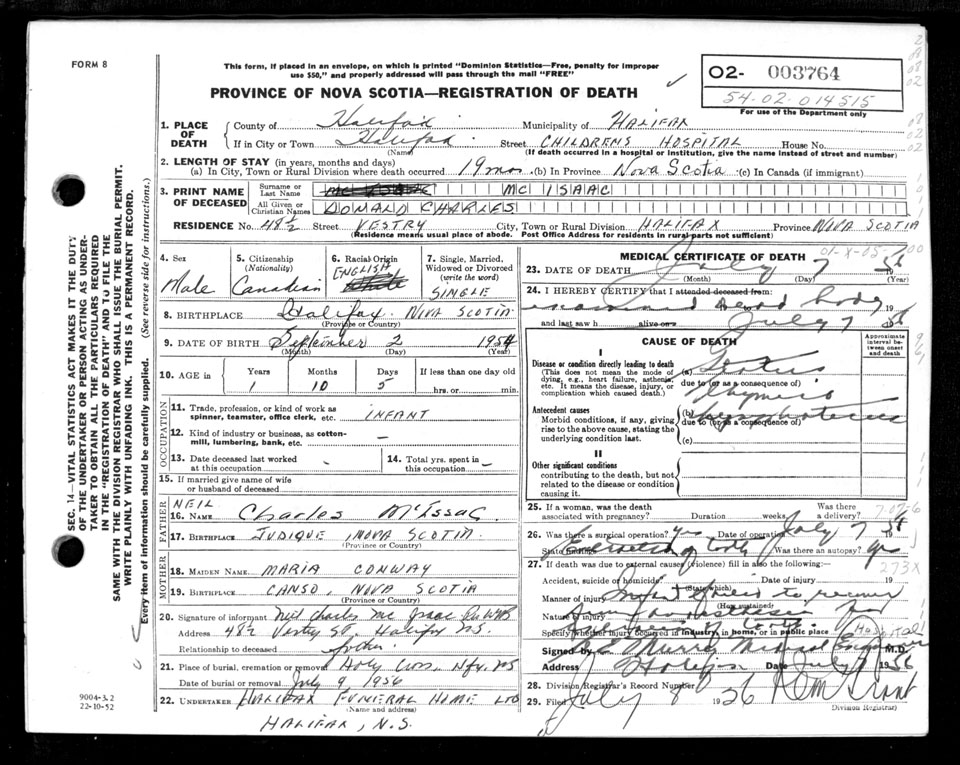 FORM 8
This form, if placed in an envelope, on which is printed "Dominion Statistics—Free, penalty for improper
use $50," and properly addressed will pass through the mail "FREE"
PROVINCE OF NOVA SCOTIA—REGISTRATION OF DEATH
O2- 003764
54.02.014515
For use of the Department only
1. PLACE OF DEATH
County of Halifax Municipality of HALIFAX
If in City or Town Halifax Street CHILDRENS HOSPITAL House No.
(Name) (If death occurred in a hospital or institution, give the name instead of street and number)
2. LENGTH OF STAY (in years, months and days)
(a) In City, Town or Rural Division where death occurred 19 mos (b) In Province Nova Scotia (c) In Canada (if immigrant)
3. PRINT NAME OF DECEASED
Surname or Last Name MC ISAAC
All Given or Christian Names DONALD CHARLES
RESIDENCE No. 48½ Street VESTRY City, Town or Rural Division HALIFAX Province NOVA SCOTIA
(Residence means usual place of abode. Post Office Address for residents in rural parts not sufficient)
4. Sex
Male
5. Citizenship
(Nationality)
Canadian
6. Racial Origin
ENGLISH
White
7. Single, Married,
Widowed or Divorced
(write the word)
SINGLE
8. BIRTHPLACE Halifax NOVA SCOTIA
(Province or Country)
9. DATE OF BIRTH September 2 1954
(Month) (Day) (Year)
10. AGE in
Years Months Days If less than one day old
1 10 5 hrs. or min.
OCCUPATION
11. Trade, profession, or kind of work as
spinner, teamster, office clerk, etc. INFANT
12. Kind of industry or business, as cotton-
mill, lumbering, bank, etc. —
13. Date deceased last worked
at this occupation —
14. Total yrs. spent in
this occupation —
15. If married give name of wife
or husband of deceased
FATHER
NEIL
16. NAME Charles McIssac
17. BIRTHPLACE JUDIQUE NOVA SCOTIA
(Province or Country)
MOTHER
18. MAIDEN NAME MARIA CONWAY
19. BIRTHPLACE CANSO, NOVA SCOTIA
(Province or Country)
20. Signature of informant Neil Charles Mc Isaac
Address 48½ Vestry St, Halifax N.S.
Relationship to deceased father
21. Place of burial, cremation or removal Holy Cross, Hfx, NS
Date of burial or removal July 9 1956
22. UNDERTAKER HALIFAX FUNERAL HOME LTD
(Name and address)
HALIFAX, N.S.
MEDICAL CERTIFICATE OF DEATH
23. DATE OF DEATH July 7 1956
(Month) (Day) (Year)
24. I HEREBY CERTIFY that I attended deceased from:
examined dead body 19
and last saw h alive on July 7 1956
CAUSE OF DEATH
Approximate interval between onset and death
I
Disease or condition directly leading to death
(This does not mean the mode of
dying, e.g., heart failure, asthenia,
etc. It means the disease, injury, or
complication which caused death.)
(a) Status
due to (or as a consequence of)
Thymico
Antecedent causes
Morbid conditions, if any, giving
rise to the above cause, stating the
underlying condition last.
(b) Lymphaticus
due to (or as a consequence of)
(c)
II
Other significant conditions
contributing to the death, but not
related to the disease or condition
causing it.
25. If a woman, was the death
associated with pregnancy? Duration weeks Was there a delivery?
26. Was there a surgical operation? yes Date of operation July 7 1956
State findings Extraction of tooth Was there an autopsy? yes
273X
27. If death was due to external causes (violence) fill in also the following:—
Accident, suicide or homicide (State which) Date of injury 19
Manner of injury Infant failed to recover
(How sustained)
Nature of injury from anaesthesia for
extraction of tooth
Specify whether injury occurred in industry, in home, or in public place Hospital
Signed by Murray Medical Examiner M.D.
Address Halifax Date July 7 1956
28. Division Registrar's Record Number
29. Filed July 8 1956 Grant
Division Registrar
SEC. 14—VITAL STATISTICS ACT MAKES IT THE DUTY
OF THE UNDERTAKER OR PERSON ACTING AS UNDER-
TAKER TO OBTAIN ALL THE PARTICULARS REQUIRED
IN THE "REGISTRATION OF DEATH" AND TO FILE THE
SAME WITH THE DIVISION REGISTRAR WHO SHALL ISSUE THE BURIAL PERMIT.
WRITE PLAINLY WITH UNFADING INK. THIS IS A PERMANENT RECORD.
Every item of information should be carefully supplied. (See reverse side for instructions.)
9004-3.2
22-10-52